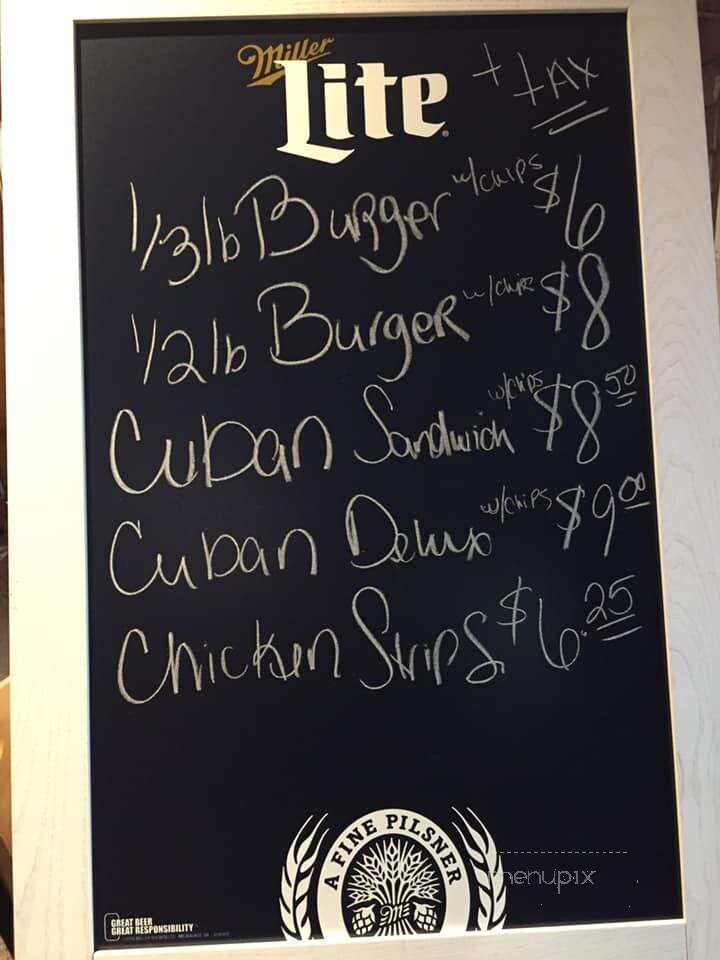 Miller
Lite + tAX
1/3lb Burger w/chips $6
1/2lb Burger w/chips $8
Cuban Sandwich w/chips $8.50
Cuban Delux w/chips $9.00
Chicken Strips $6.25
A FINE PILSNER
menupix
GREAT BEER
GREAT RESPONSIBILITY